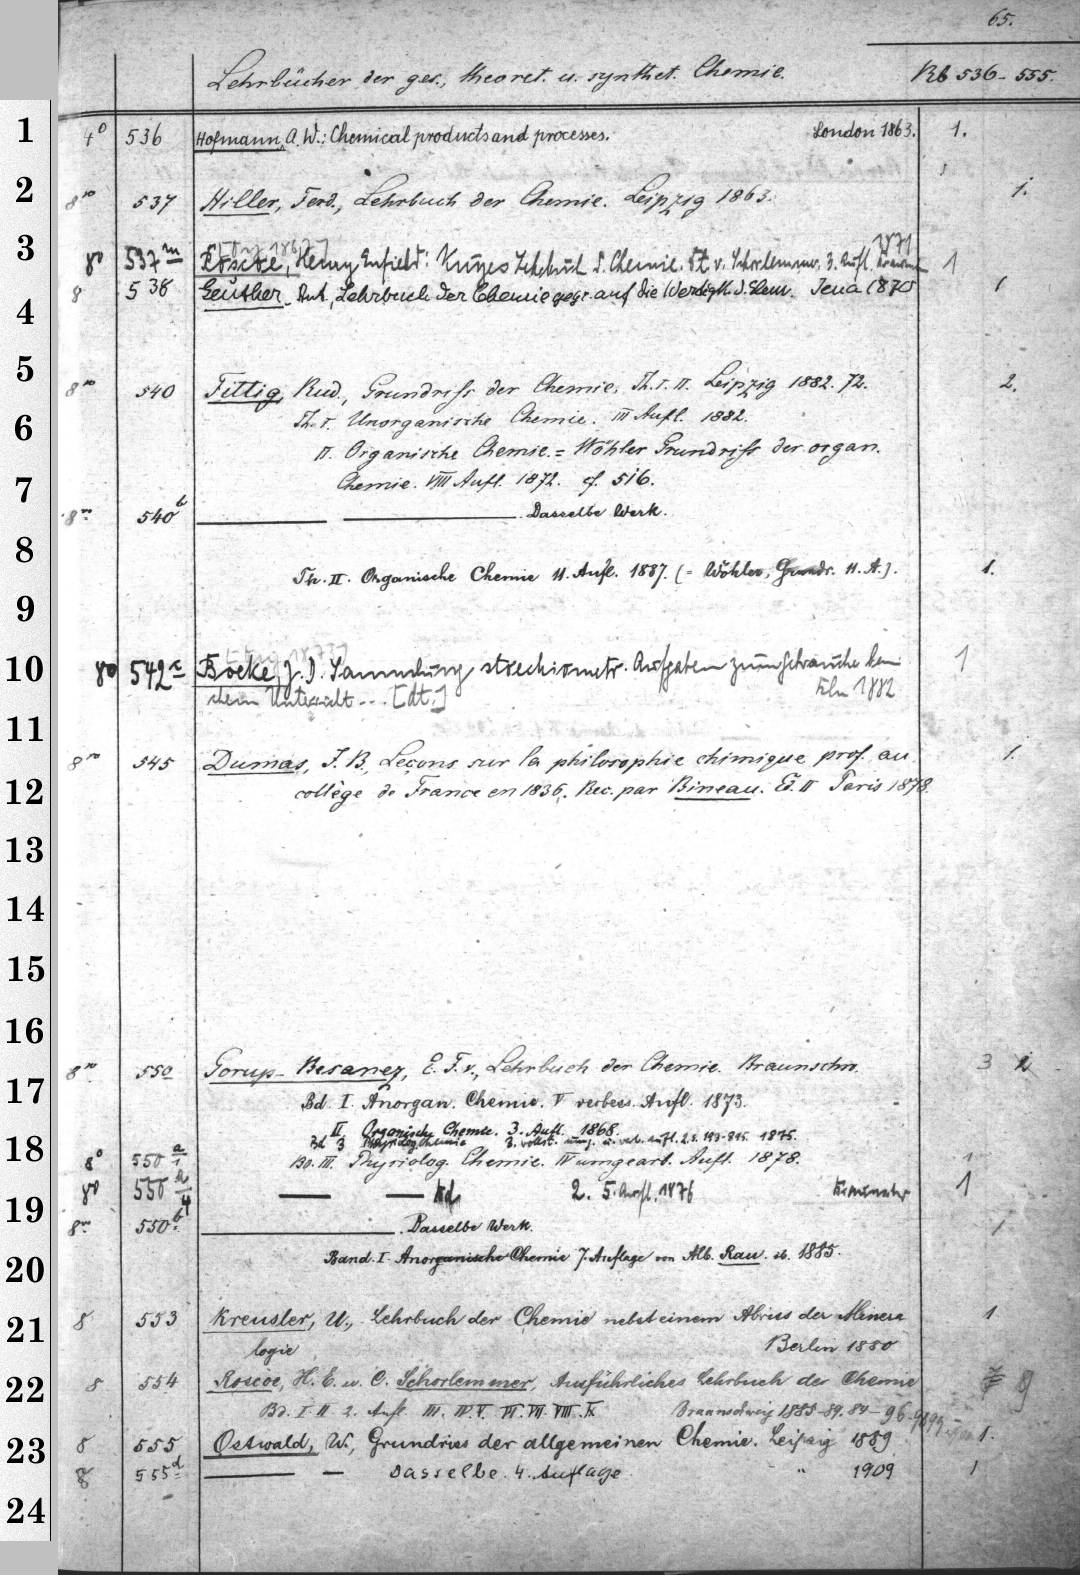 65.
Lehrbücher der ges., theoret. u. synthet. Chemie. Rb 536-555.
1
4° 536 Hofmann, A. W.: Chemical products and processes. London 1863. 1.
2
8vo 537 Hiller, Ferd., Lehrbuch der Chemie. Leipzig 1863. 1.
3
1871
8° 537m Roscoe, Henry Enfield: Kurzes Lehrbuch d. Chemie. Dt v. Schorlemmer, 3. Aufl. 1
8 538 Geuther, Ant., Lehrbuch der Chemie gegr. auf die Werthigk. d. Elem. Jena 1870 1
4
5
8vo 540 Fittig, Rud., Grundriss der Chemie. Th. I. II. Leipzig 1882. 72. 2.
Th. I. Unorganische Chemie. III Aufl. 1882.
6
II. Organische Chemie. = Wöhler Grundriss der organ.
7
Chemie. VIII Aufl. 1872. cf. 516.
8vo 540b Dasselbe Werk.
8
Th. II. Organische Chemie 11. Aufl. 1887. (= Wöhler, Grundr. 11. A.). 1.
9
10
8° 542c Boeke, J. D. Sammlung stoechiometr. Aufgaben zum Gebrauche beim
chem Unterricht ... [dt.] Bln 1882 1
11
8vo 545 Dumas, J. B., Leçons sur la philosophie chimique prof. au 1.
12
collège de France en 1836. Rec. par Bineau. Ed. II Paris 1878.
13
14
15
16
8vo 550 Gorup-Besanez, E. F. v., Lehrbuch der Chemie. Braunschw. 3
17
Bd. I. Anorgan. Chemie. V verbess. Aufl. 1873.
II. Organische Chemie. 3. Aufl. 1868.
18
Bd 3 Physiolog Chemie 3. vollst. umg. u. verb. Aufl. 2. S. 193-815. 1875.
8° 550 a/1 Bd. III. Physiolog. Chemie. IV umgearb. Aufl. 1878. 1
8° 550 Bd 2. 5. Aufl. 1876 1
19
8vo 550b Dasselbe Werk. 1
20
Band. I. Anorganische Chemie 7. Auflage von Alb. Rau. ib. 1885.
21
8 553 Kreusler, U., Lehrbuch der Chemie nebst einem Abriss der Minera 1.
logie Berlin 1880
22
8 554 Roscoe, H. E. u. C. Schorlemmer, Ausführliches Lehrbuch der Chemie 8
Bd. I II 2. Aufl. III. IV. V. VI. VII. VIII. IX. Braunschweig 1885-89. 84-96
23
8 555 Ostwald, W., Grundriss der allgemeinen Chemie. Leipzig 1889 1.
8 555d Dasselbe. 4. Auflage " 1909 1
24